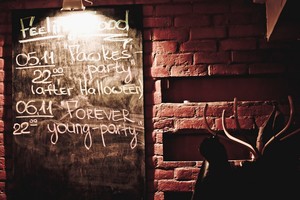 Feelin' Good
05.11 "Fawkes
22 00 party"
(after Halloween)
06.11 "FOREVER
22 00 young-party"